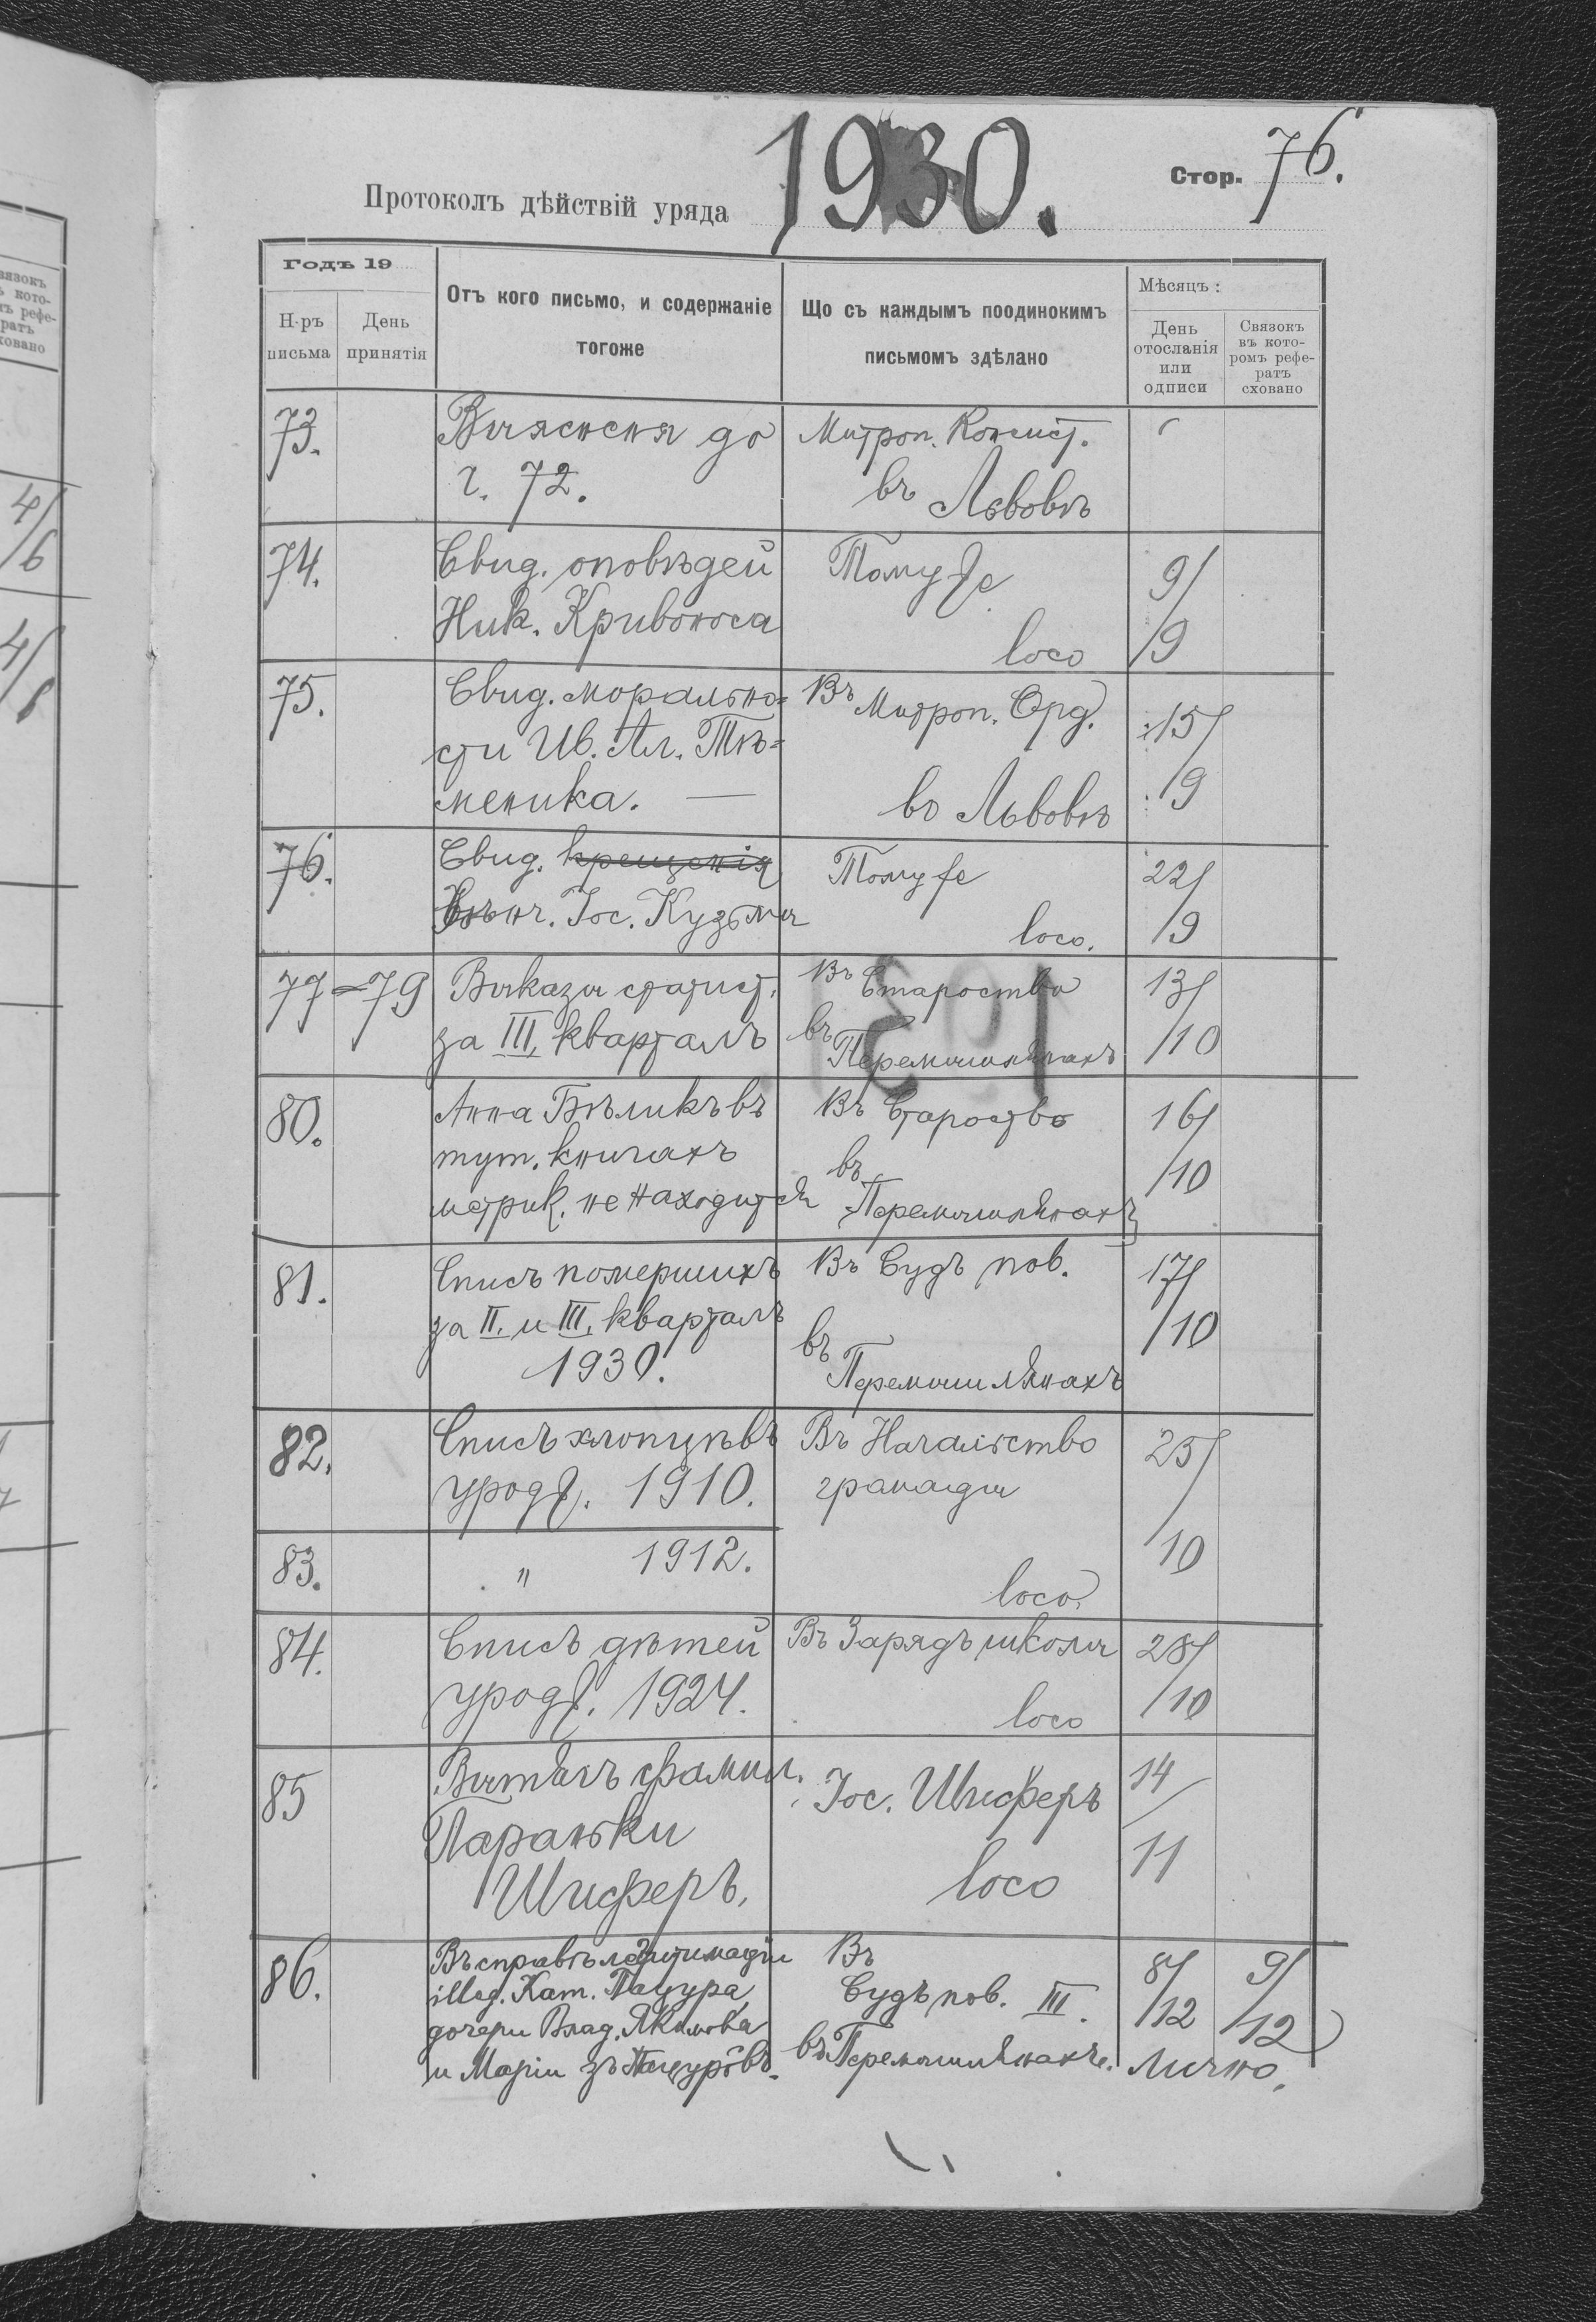 1930.
Стор. 76.
Протоколъ дѣйствій уряда
Годъ 19
Н-ръ письма
День принятія
Отъ кого письмо, и содержаніе
тогоже
Що съ каждымъ поодинокимъ
письмомъ здѣлано
Мѣсяцъ:
День
отосланія
или
одписи
Связокъ
въ кото-
ромъ рефе-
ратъ
сховано
73. Выяснєня до Митроп. Консист.
ч. 72. въ Львовѣ
74. Свид. оповѣдей Томуже 9/
Ник. Кривоноса loco /9
75. Свид. морально= Въ Митроп. Орд. 15/
сти Ив. Ал. Тѣ=
меника. — во Львовѣ /9
76. Свид. крещенія Томуже 22/
Вѣнч. Іос. Кузьмы loco. /9
77=79 Выказы статист. Въ Староство 13/
за III. кварталъ въ Перемышлянахъ /10
80. Анна Бѣликъ въ Въ Староство 16/
тут. книгахъ въ /10
метрик. не находится Перемышлянахъ
81. Списъ помершихъ Въ Судъ пов. 17/
за II. и III. кварталъ въ /10
1930. Перемышлянахъ
82. Списъ хлопцѣвъ Въ Начальство 25/
урожд. 1910. громады
83. " 1912. loco. /10
84. Списъ дѣтей Въ Зарядъ школы 28/
урожд. 1924. loco /10
85 Вытягъ фамил. Іос. Шнферъ 14/
Параньки loco 11
Шнферъ.
86. Въ справѣ легитимаціи Въ 8/ 9/
illeg. Кат. Пацура, Судъ пов. III. /12 /12
дочери Влад. Якимова
и Маріи зъ Пацурôвъ. въ Перемышлянахъ. лично.